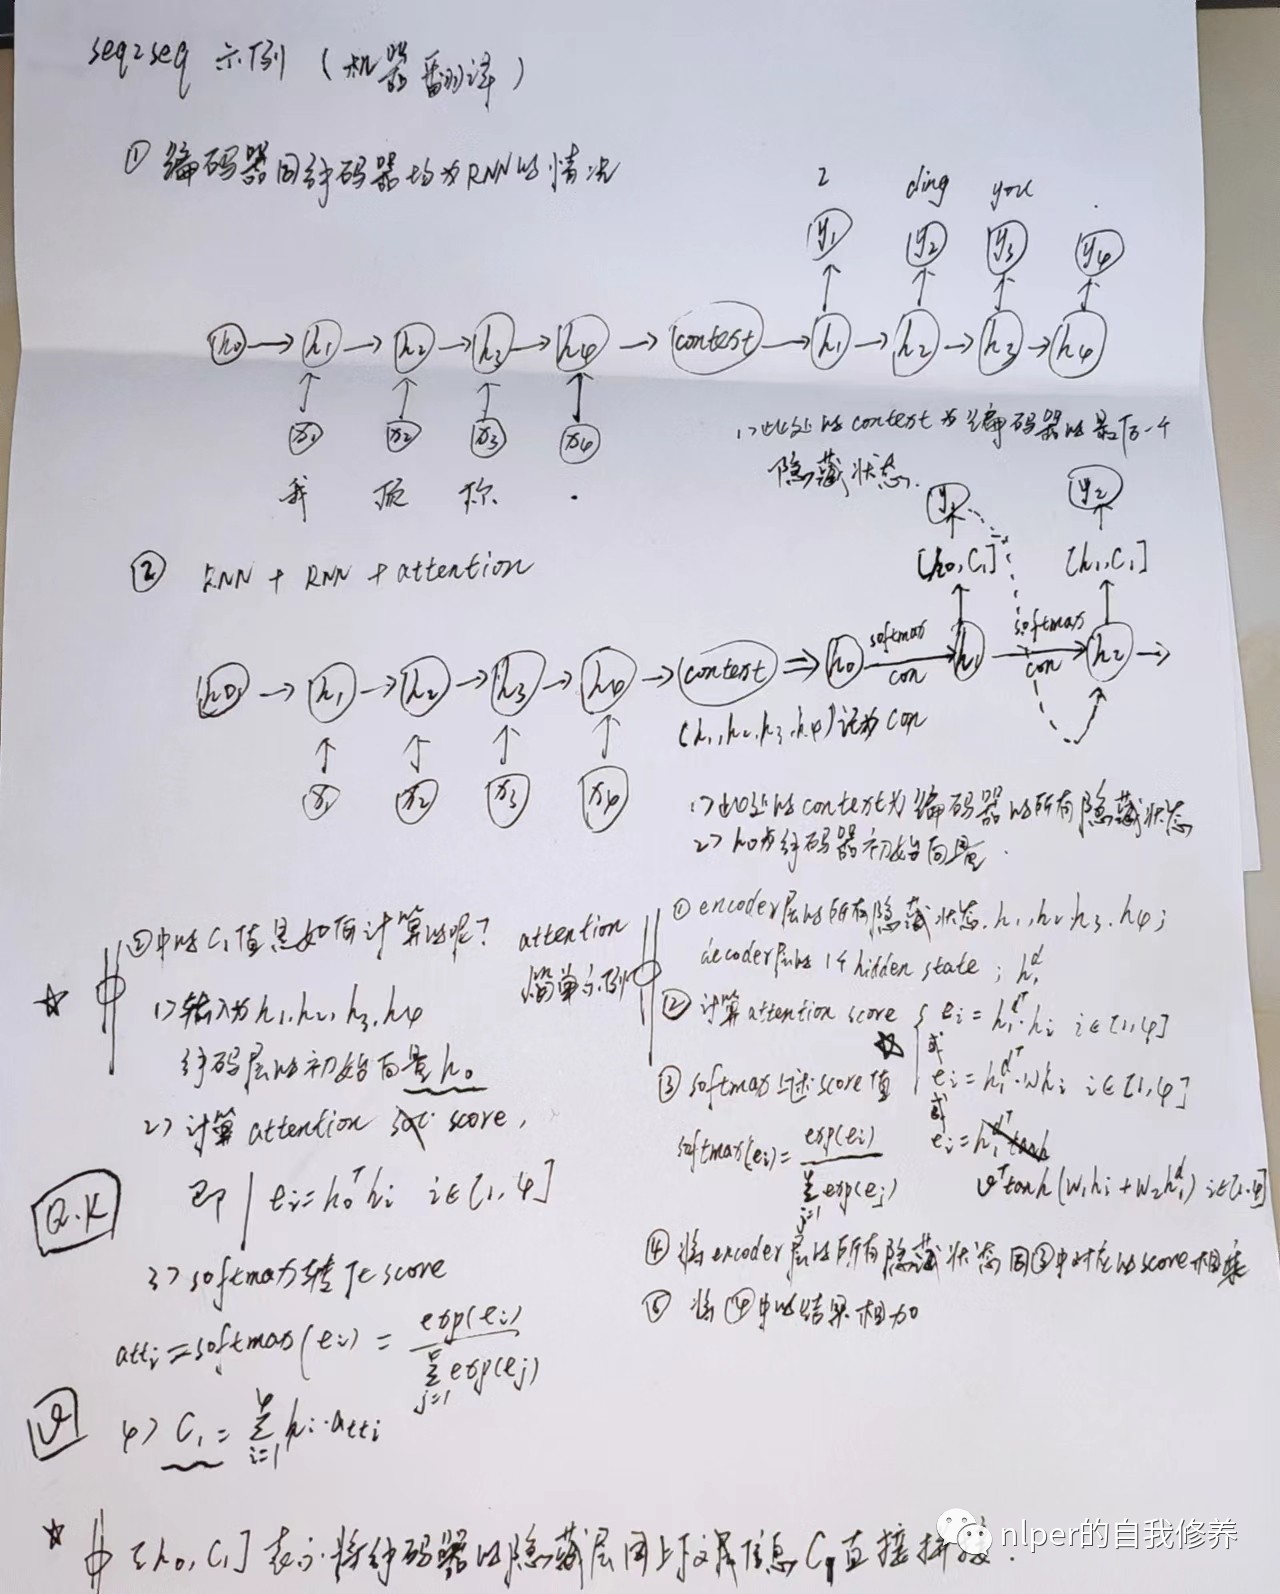 seq2seq 示例 (机器翻译)
① 编码器同解码器均为RNN的情况
I ding you .
y₁ y₂ y₃ y₄
h₀ → h₁ → h₂ → h₃ → h₄ → context → h₁ → h₂ → h₃ → h₄
x₁ x₂ x₃ x₄
我 顶 你 .
1> 此处的context为编码器的最后一个
隐藏状态.
② RNN + RNN + attention
y₁ y₂
[h₀, C₁] [h₁, C₁]
h₀ → h₁ → h₂ → h₃ → h₄ → context ⇒ h₀ softmax con h₁ → softmax con h₂ →
(h₁, h₂, h₃, h₄) 记为 con
x₁ x₂ x₃ x₄
1> 此处的context为编码器的所有隐藏状态
2> h₀为解码器初始向量.
☆ ②中的C₁值是如何计算的呢?
1> 输入为h₁, h₂, h₃, h₄
解码层的初始向量h₀
2> 计算attention score,
Q.K 即 eᵢ = h₀ᵀhᵢ i∈[1, 4]
3> softmax转下e score
attᵢ = softmax(eᵢ) = exp(eᵢ) / Σⱼ₌₁ exp(eⱼ)
V 4> C₁ = Σᵢ₌₁⁴ hᵢ·attᵢ
attention
简单示例
① encoder层的所有隐藏状态. h₁, h₂, h₃, h₄;
decoder层的1个hidden state ; h₁ᵈ
② 计算attention score ☆ { eᵢ = h₁ᵈᵀ·hᵢ i∈[1,4]
或
eᵢ = h₁ᵈᵀ·Whᵢ i∈[1,4]
或
eᵢ = h₁ᵈᵀtanh
vᵀtanh(W₁hᵢ + W₂h₁ᵈ) i∈[1,4]
③ softmax上述score值
softmax(eᵢ) = exp(eᵢ) / Σⱼ₌₁ exp(eⱼ)
④ 将encoder层的所有隐藏状态同③中对应的score相乘
⑤ 将④中的结果相加
☆ [h₀, C₁] 表示将解码器的隐藏层同上下文信息C₁直接拼接.
nlper的自我修养